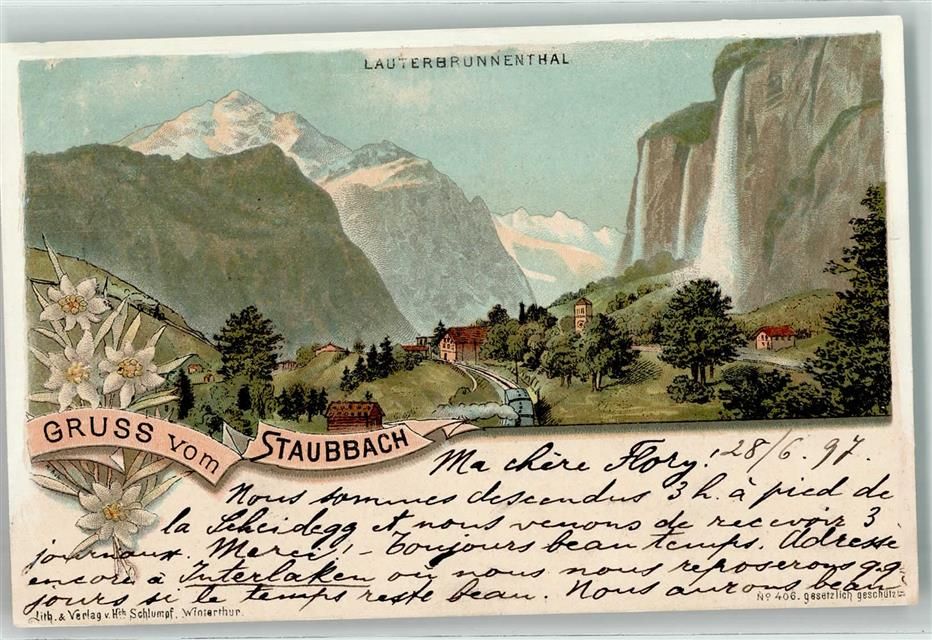 LAUTERBRUNNENTHAL
GRUSS vom STAUBBACH
Ma chère Flory! 28/6. 97.
Nous sommes descendus 3 h. à pied de
la Scheidegg et nous venons de recevoir 3
journaux. Merci! - Toujours beau temps. Adresse
encore à Interlaken où nous nous reposerons q.q.
jours si le temps reste beau. Nous aurons beau
Lith. & Verlag v. Hch Schlumpf, Winterthur.
No 406. gesetzlich geschützt